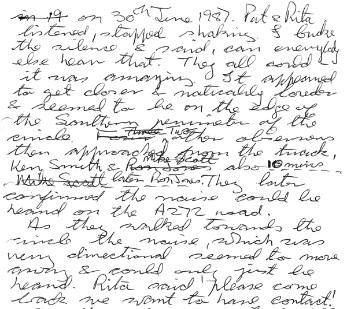 in 19 on 30th June 1987. Pat & Rita
listened, stopped shaking & broke
the silence & said, can everybody
else hear that. They all could -
it was amazing. It appeared
to get closer & noticably louder
& seemed to be on the edge of
the Southern perimeter of the
circle. Two other observers
then approached from the truck,
Ken Smith & Mike Scott also 10 mins
Mike Scott later Ron Jones. They later
confirmed the noise could be
heard on the A272 road.
As they walked towards the
circle the noise, which was
very directional seemed to move
away & could only just be
heard. Rita said 'please come
back we want to have contact!'